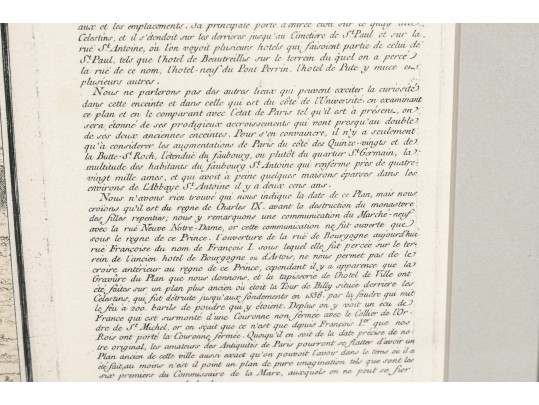 aux et les emplacements. Sa principale porte d'entrée étoit sur le quay des
Celestins, et il s'étendoit sur les derrieres jusqu'au Cimetiere de St. Paul et sur la
rue St. Antoine, où l'on voyoit plusieurs hotels qui faisoient partie de celui de
St. Paul, tels que l'hotel de Beautreillis sur le terrein du quel on a percé
la rue de ce nom, l'hotel-neuf du Pont Perrin, l'hotel de Pute y muce et
plusieurs autres.
Nous ne parlerons pas des autres lieux qui peuvent exciter la curiosité
dans cette enceinte et dans celle qui est du côté de l'Université: en examinant
ce plan et le comparant avec l'état de Paris tel qu'il est à present, on
sera étonné de ses prodigieux accroissements qui vont presqu'au double
de ses deux anciennes enceintes. Pour s'en convaincre, il n'y a seulement
qu'à considerer les augmentations de Paris du côté des Quinze-vingts et de
la Butte-St. Roch, l'étendue du faubourg, ou plutôt du quartier St. Germain, la
multitude des habitants du faubourg St. Antoine qui renferme près de quatre
vingt mille ames, et qui avoit à peine quelques maisons éparses dans les
environs de l'Abbaye St. Antoine il y a deux cens ans.
Nous n'avons rien trouvé qui nous indique la date de ce Plan, mais nous
croions qu'il est du regne de Charles IX. avant la destruction du monastere
des filles repenties; nous y remarquons une communication du Marché-neuf
avec la rue Neuve Notre-Dame, or cette communication ne fut ouverte que
sous le regne de ce Prince. L'ouverture de la rue de Bourgogne aujourd'hui
rue Françoise du nom de François I. sous lequel elle fut percée sur le ter-
rein de l'ancien hotel de Bourgogne ou d'Artois, ne nous permet pas de le
croire antérieur au regne de ce Prince, cependant il y a apparence que la
Gravûre du Plan que nous donnons, et la tapisserie de l'hotel de Ville ont
été faites sur un plan plus ancien où étoit la Tour de Billy située derriere les
Celestins, qui fut détruite jusqu'aux fondements en 1538. par la foudre qui mit
le feu à 200. barils de poudre qui y étoient. Deplus on y voit un écu de
France qui est surmonté d'une Couronne non fermée avec le Collier de l'Or-
dre de St. Michel, or on sçait que ce n'est que depuis François Ier. que nos
Rois ont porté la Couronne fermée. Quoiqu'il en soit de la date précise de no-
tre original, les amateurs des Antiquités de Paris pourront se flatter d'avoir un
Plan ancien de cette ville aussi exact qu'on pouvoit l'avoir dans le tems ou il a
été fait, au moins n'est il point un plan de pure imagination tels que sont les
six premiers du Commissaire de la Mare, auxquels on ne peut se fier